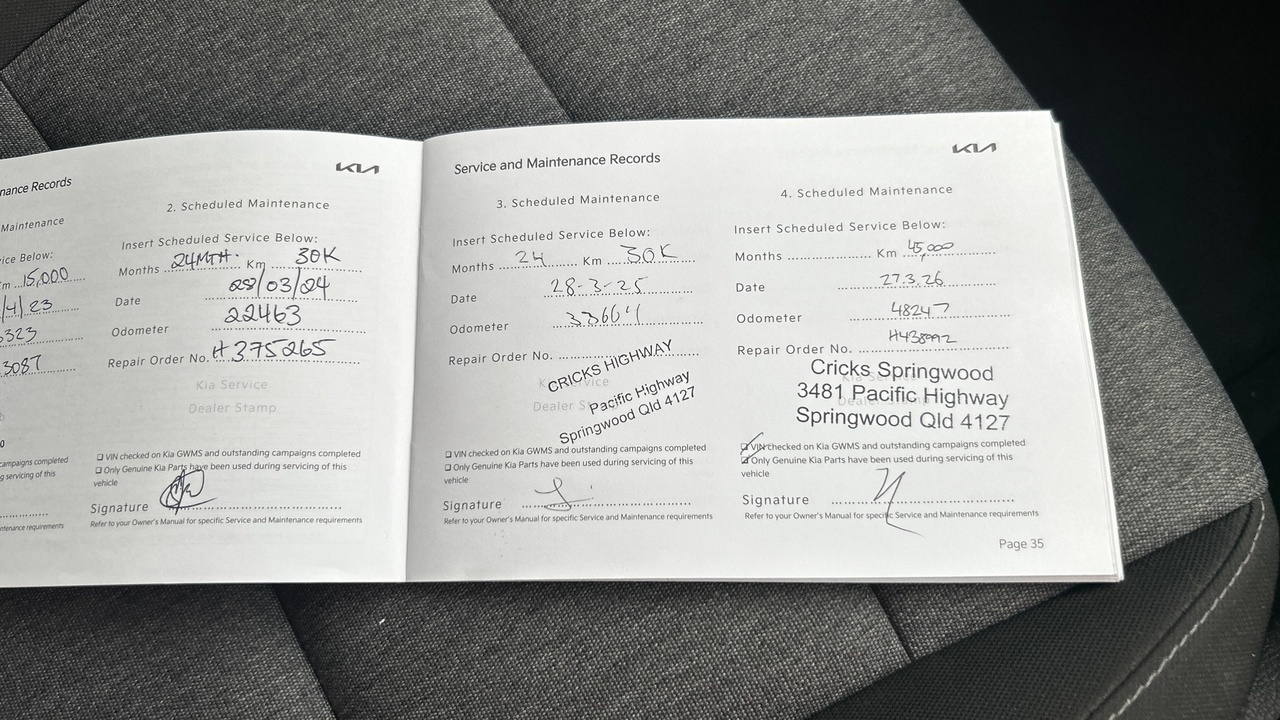 nance Records
Maintenance
ice Below:
m 15,000
/4/23
323
3087
0
campaigns completed
g servicing of this
ntenance requirements
KIA
2. Scheduled Maintenance
Insert Scheduled Service Below:
Months 24MTH. Km 30K
Date 28/03/24
Odometer 22463
Repair Order No. H375265
Kia Service
Dealer Stamp
❑ VIN checked on Kia GWMS and outstanding campaigns completed
❑ Only Genuine Kia Parts have been used during servicing of this
vehicle
Signature
Refer to your Owner's Manual for specific Service and Maintenance requirements
Service and Maintenance Records
3. Scheduled Maintenance
Insert Scheduled Service Below:
Months 24 Km 30K
Date 28-3-25
Odometer
Repair Order No.
CRICKS HIGHWAY
Pacific Highway
Springwood Qld 4127
❑ VIN checked on Kia GWMS and outstanding campaigns completed
❑ Only Genuine Kia Parts have been used during servicing of this
vehicle
Signature
Refer to your Owner's Manual for specific Service and Maintenance requirements
KIA
4. Scheduled Maintenance
Insert Scheduled Service Below:
Months Km 45,000
Date 27.3.26
Odometer 48247
Repair Order No.
Cricks Springwood
3481 Pacific Highway
Springwood Qld 4127
❑ VIN checked on Kia GWMS and outstanding campaigns completed
❑ Only Genuine Kia Parts have been used during servicing of this
vehicle
Signature
Refer to your Owner's Manual for specific Service and Maintenance requirements
Page 35